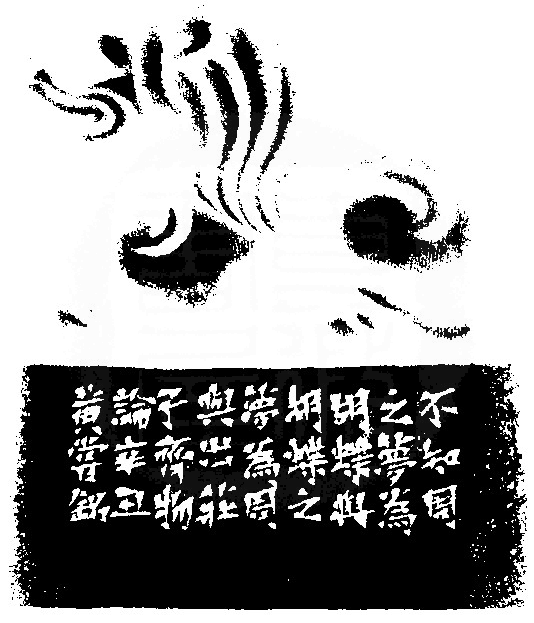 不知周
之夢為
胡蝶與
胡蝶之
夢為周
與出莊
子齊物
論辛丑
黃嘗銘